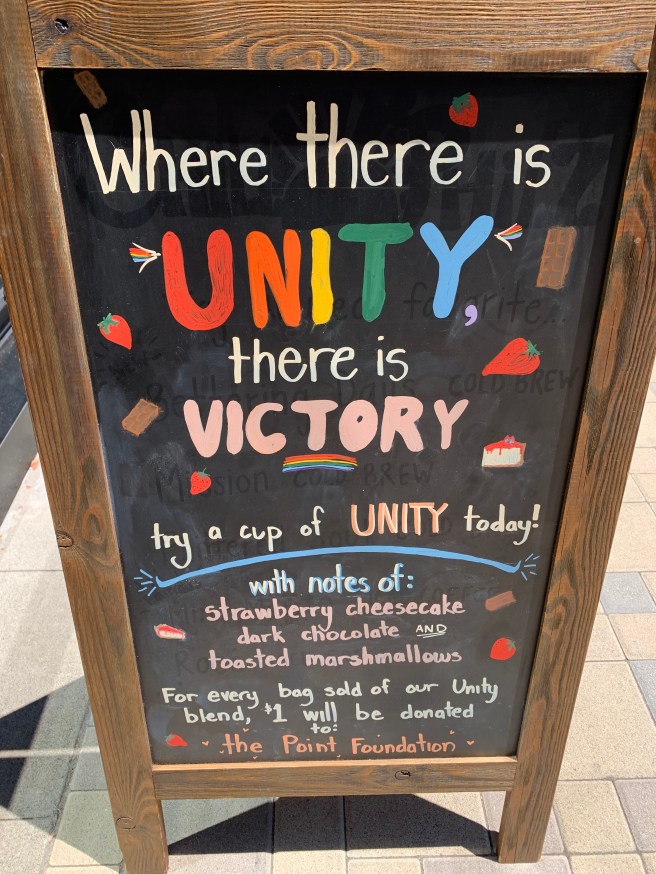 Where there is
UNITY,
there is
VICTORY
try a cup of UNITY today!
with notes of:
strawberry cheesecake
dark chocolate AND
toasted marshmallows
For every bag sold of our Unity
blend, $1 will be donated
to:
the Point Foundation